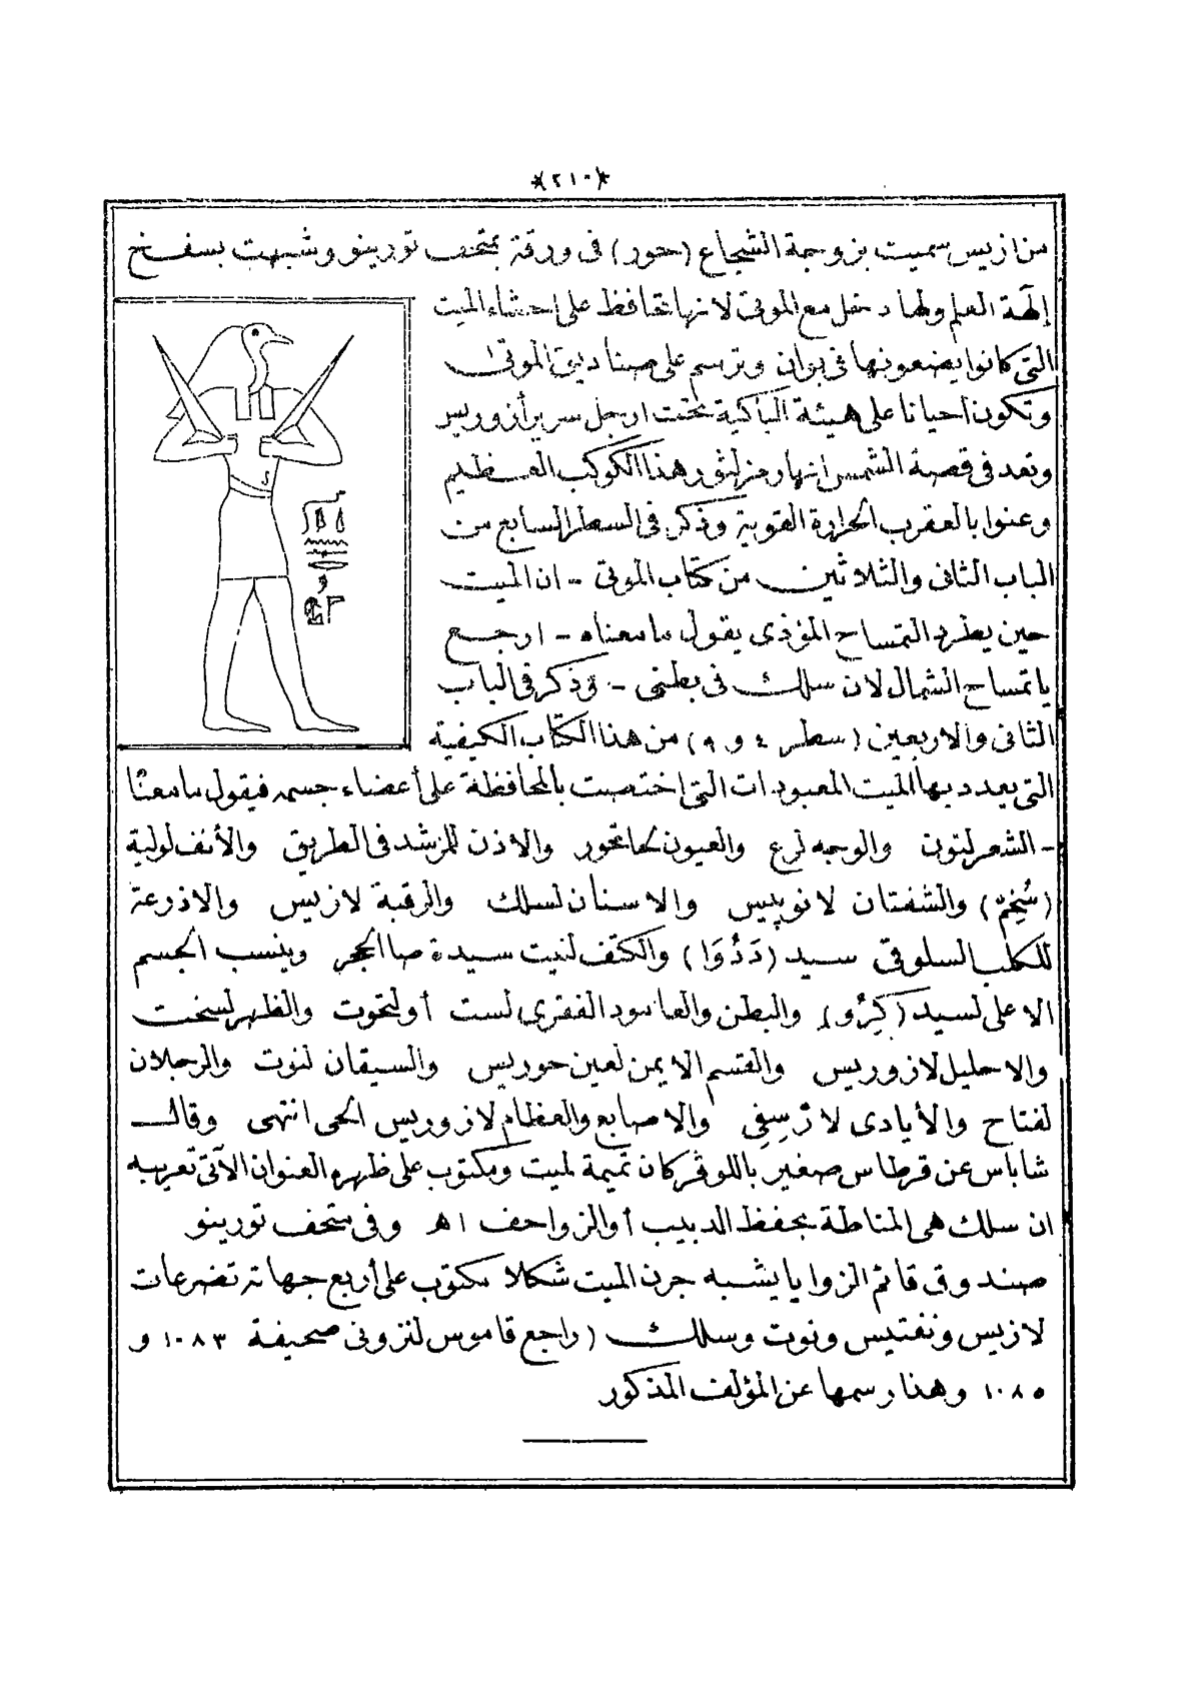 *(٢١٠)*
من ازيس سميت بزوجة الشجاع (حور) فى ورقة بمتحف تورينو وشبهت بسفخ
إلهة العلم ولها دخل مع الموتى لانها تحافظ على احشاء الميت
التى كانوا يضعونها فى بوان وترسم على صناديق الموتى
وتكون احيانا على هيئة الباكية تحت ارجل سرير أزوريس
وتعد فى قصة الشمس انها رمز لنور هذا الكوكب العظيم
وعنوا بالعقرب الحرارة القوية وذكر فى السطر السابع من
الباب الثانى والثلاثين من كتاب الموتى - ان الميت
حين يطرد التمساح المؤذى يقول مامعناه - ارجع
ياتمساح الشمال لان سلك فى بطنى - وذكر فى الباب
الثانى والاربعين (سطر ٤ و ٩) من هذا الكتاب الكيفية
التى يعدد بها الميت المعبودات التى اختصت بالمحافظة على أعضاء جسمه فيقول مامعناه
- الشعر لنون والوجه لرع والعيون لهاتحور والاذن للمرشد فى الطريق والأنف لولية
(سُخِمْ) والشفتان لانوبيس والاسنان لسلك والرقبة لازيس والاذرعة
للكلب السلوقى سيد (دَدُوَا) والكتف لنيت سيدة صا الحجر وينسب الجسم
الاعلى لسيد (كِرْو) والبطن والعامود الفقرى لست أولتحوت والظهر لسخت
والاحليل لازوريس والقسم الايمن لعين حوريس والسيقان لنوت والرجلان
لفتاح والأيادى لارْسِفِى والاصابع والعظام لازوريس الحى انتهى وقال
شاباس عن قرطاس صغير باللوفر كان تميمة لميت ومكتوب على ظهره العنوان الآتى تعريبه
ان سلك هى المناطة بحفظ الدبيب أوالزواحف اه وفى متحف تورينو
صندوق قائم الزوايا يشبه جرن الميت شكلا مكتوب على أربع جهاته تضرعات
لازيس ونفتيس ونوت وسلك (راجع قاموس لنزونى صحيفة ١٠٨٣ و
١٠٨٥ وهنا رسمها عن المؤلف المذكور